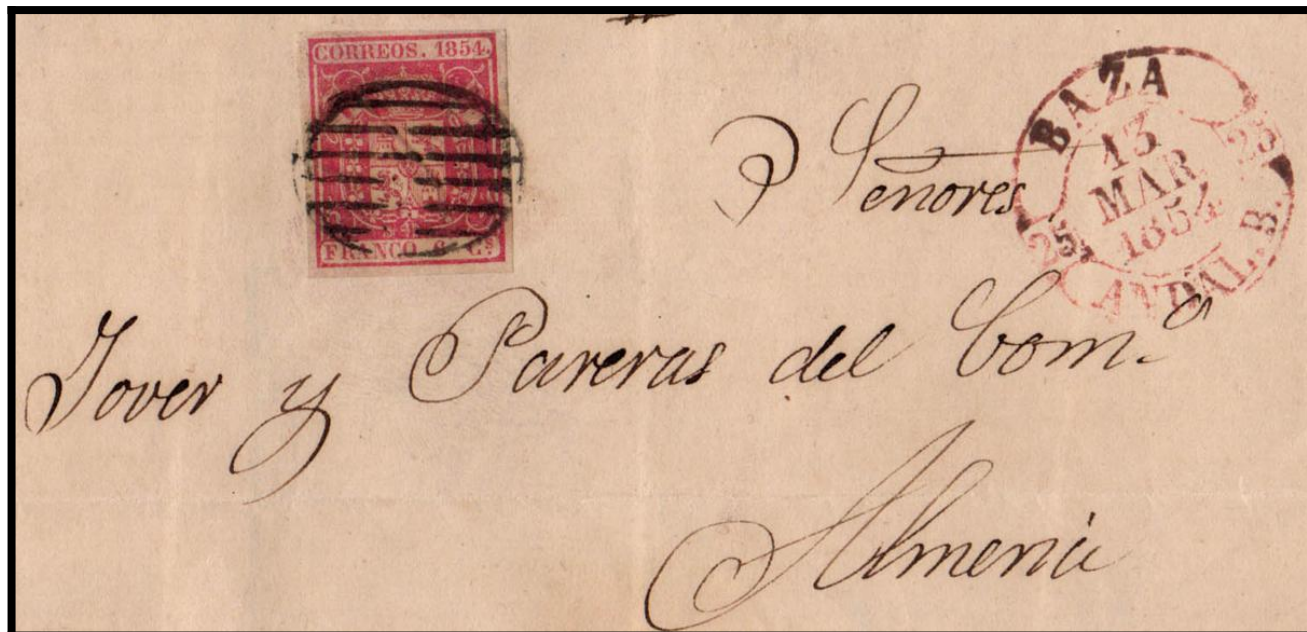 CORREOS. 1854.
FRANCO 6 Cs
BAZA
25 13 25
MAR
1854
ANDAL. B.
Señores
Jover y Pareras del Comº
Almeria